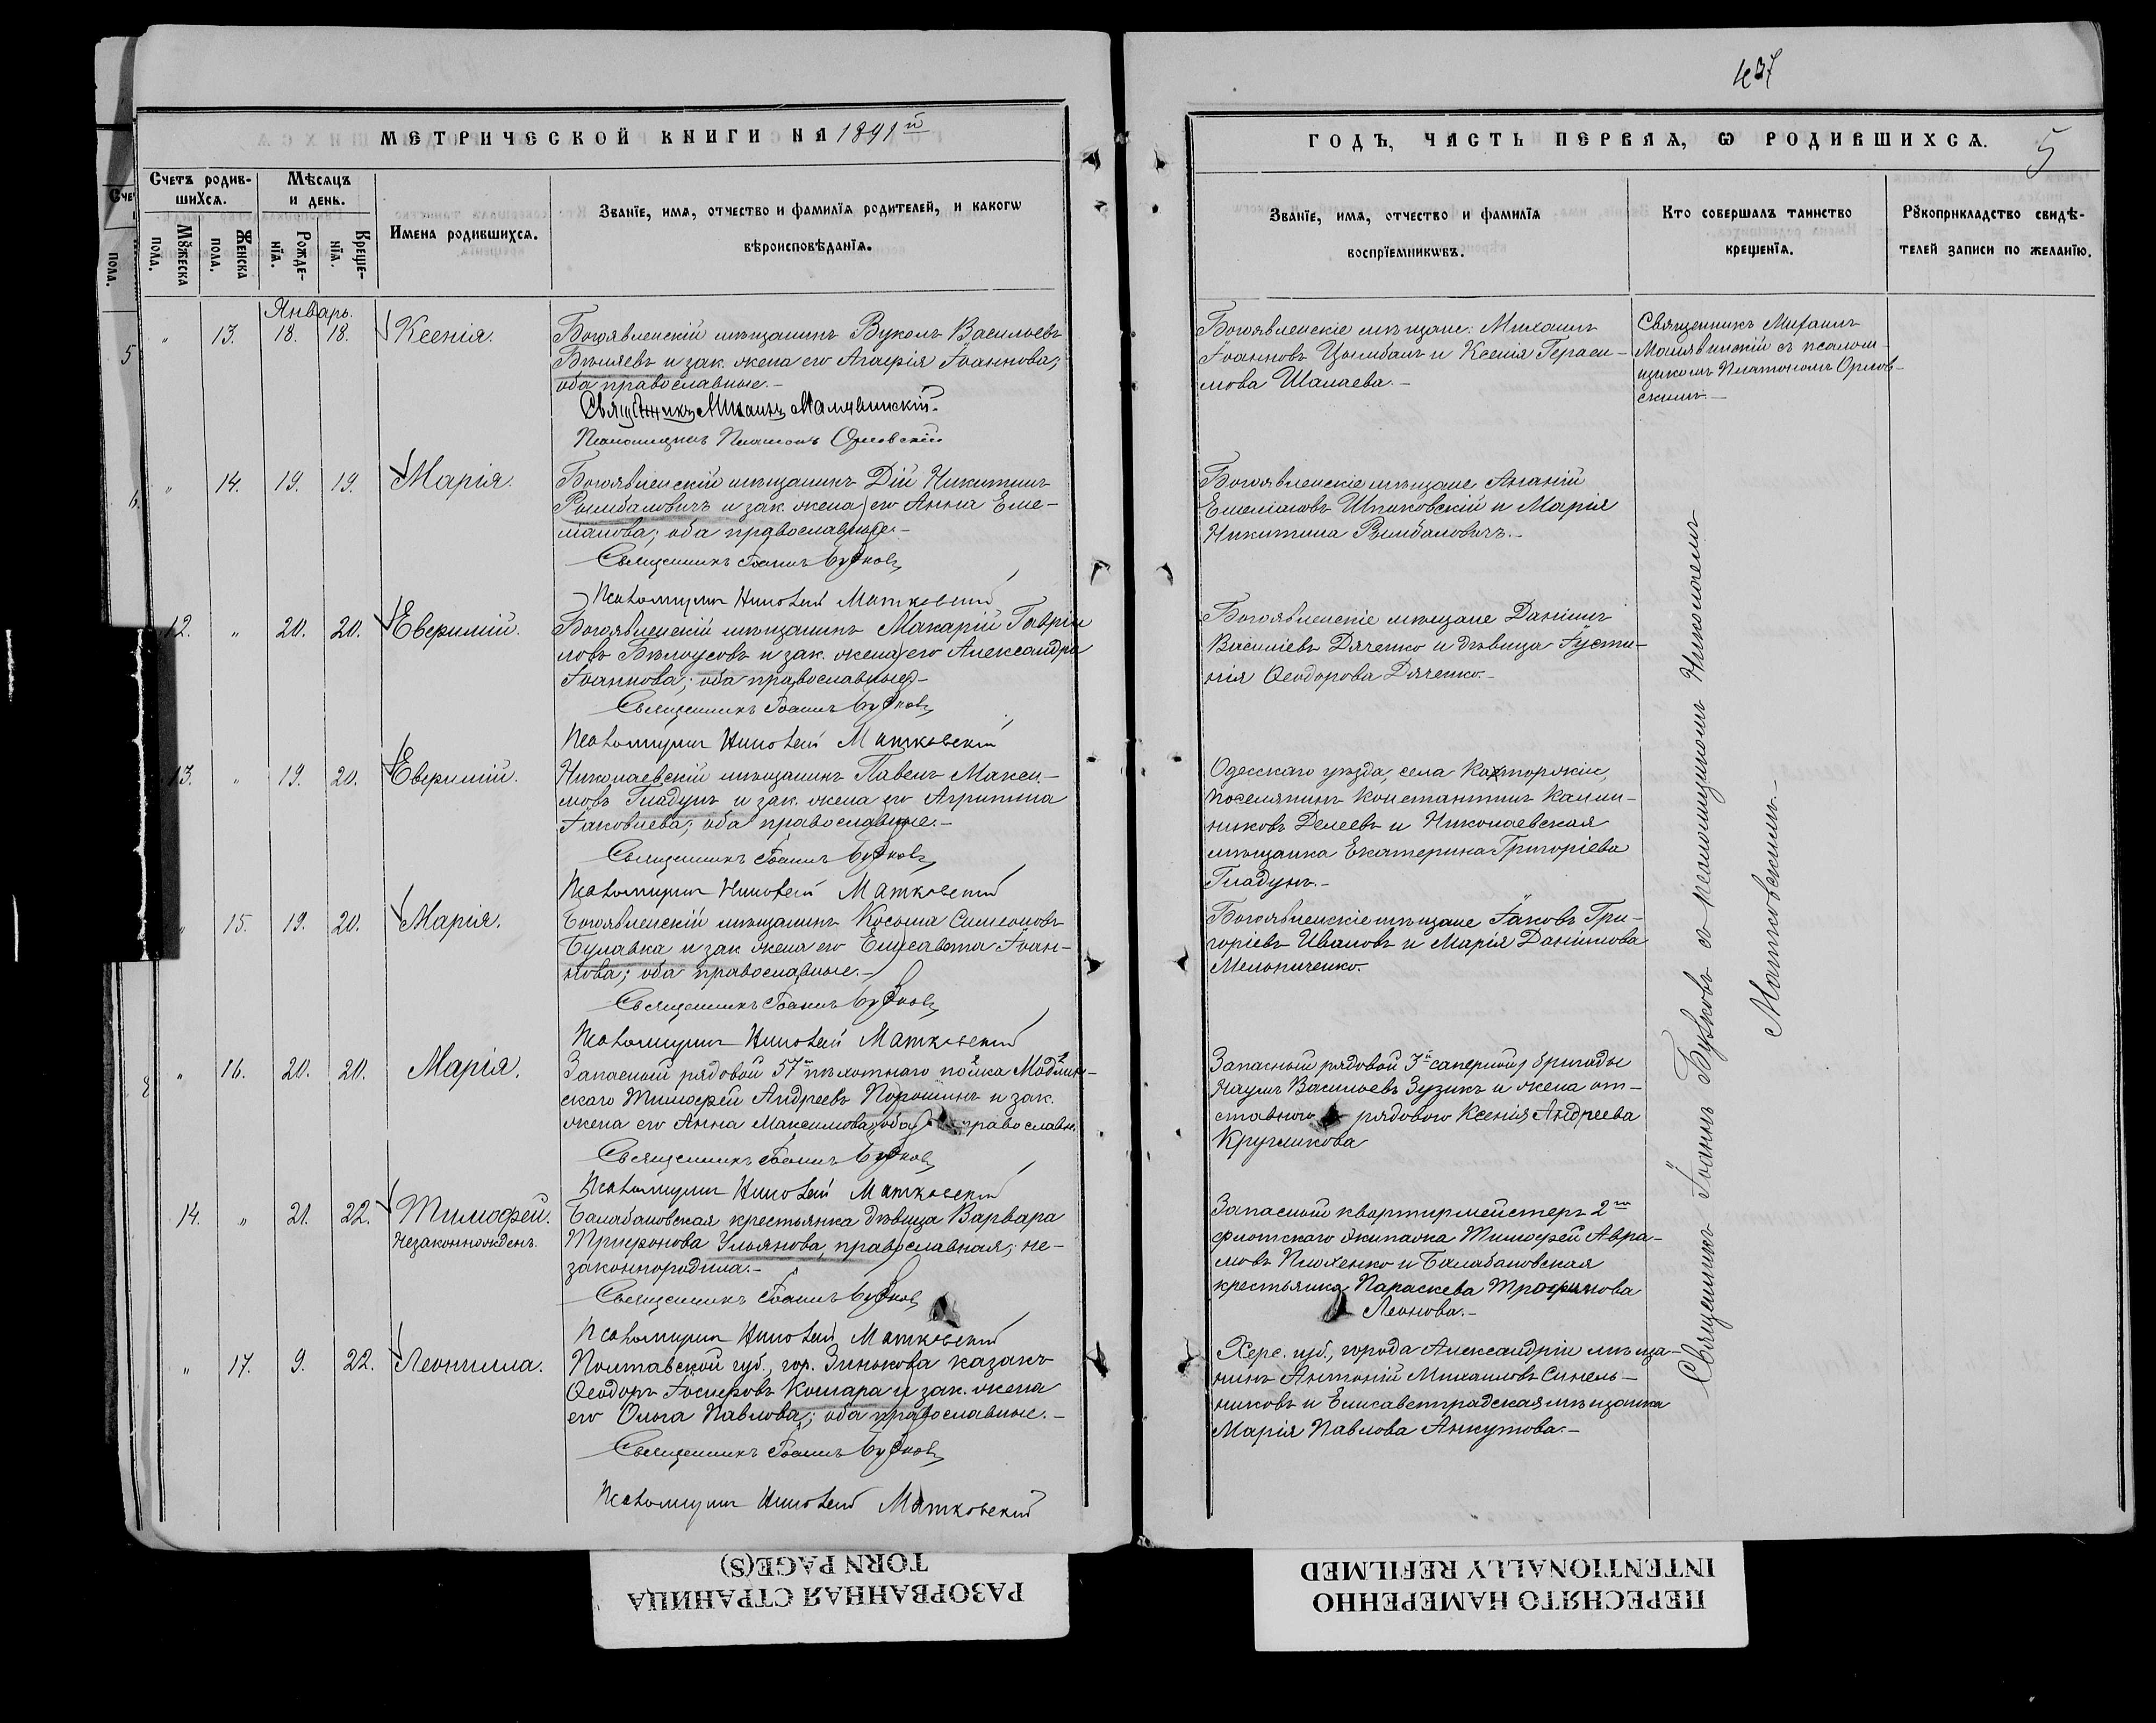 437
МЕТРИЧЕСКОЙ КНИГИ НА 1891й
ГОДЪ, ЧАСТЬ ПЕРВАЯ, Ѡ РОДИВШИХСѦ.
5
Счетъ родив-
шихсѧ.
Мѣсѧцъ
и день.
Мꙋжеска
пола.
Женска
пола.
Рожде-
нїѧ.
Креще-
нїѧ.
Имена родившихсѧ.
Званїе, имѧ, отчество и фамилїѧ родителей, и какогѡ
вѣроисповѣданїѧ.
Званїе, имѧ, отчество и фамилїѧ
воспрїемникѡвъ.
Кто совершалъ таинство
крещенїѧ.
Рꙋкоприкладство свидѣ-
телей записи по желанїю.
Январь.
" 13. 18. 18. Ксенія.
Богоявленскій мѣщанинъ Вуколъ Васильевъ
Бѣляевъ и зак. жена его Агафія Іоаннова;
оба православные.-
Священникъ Михаилъ Малявинскій.
Псаломщикъ Платонъ Орловскій
Богоявленскіе мѣщане: Михаилъ
Іоанновъ Цымбалъ и Ксенія Гераси-
мова Шалаева.-
Священникъ Михаилъ
Малявинскій съ псалом-
щикомъ Платономъ Орлов-
скимъ.-
" 14. 19. 19. Марія.
Богоявленскій мѣщанинъ Дій Никитинъ
Рымбаловичъ и зак. жена его Анна Еме-
ліанова; оба православные.-
Священникъ Іоаннъ Бужковъ
Псаломщикъ Николай Матковскій
Богоявленскіе мѣщане Ананій
Емеліановъ Шпиковскій и Марія
Никитина Рымбаловичъ.-
12. " 20. 20. Евфимій.
Богоявленскій мѣщанинъ Макарій Гаврии
ловъ Бѣлоусовъ и зак. жена его Александра
Іоаннова; оба православные-
Священникъ Іоаннъ Бужковъ
Псаломщикъ Николай Матковскій
Богоявленскіе мѣщане Даніилъ
Василіевъ Дяченко и дѣвица Іусти-
нія Ѳеодорова Дяченко.-
13. " 19. 20. Евфимій.
Николаевскій мѣщанинъ Павелъ Макси-
мовъ Гладунъ и зак. жена его Агриппина
Іаковлева; оба православные.-
Священникъ Іоаннъ Бужковъ
Псаломщикъ Николай Матковскій
Одесскаго уѣзда, села
поселянинъ Константинъ Калин-
никовъ Делеевъ и Николаевская
мѣщанка Екатерина Григоріева
Гладунъ.-
" 15. 19. 20. Марія.
Богоявленскій мѣщанинъ Косьма Симеоновъ
Булавка и зак. жена его Елисавета Іоан-
нова; оба православные.-
Священникъ Іоаннъ Бужковъ
Псаломщикъ Николай Матковскій
Богоявленскіе мѣщане Іаковъ Гри-
горіевъ Ивановъ и Марія Даніилова
Мельниченко.
" 16. 20. 20. Марія.
Запасной рядовой 57го пѣхотнаго полка Модлин-
скаго Тимофей Андреевъ Порошинъ и зак.
жена его Анна Максимова, оба православн.
Священникъ Іоаннъ Бужковъ
Псаломщикъ Николай Матковскій
Запасный рядовой 3й саперной бригады
Наумъ Васильевъ Зузикъ и жена от-
ставного рядового Ксенія Андреева
Кругликова
14. " 21. 22. Тимофей.
Незаконнорожденъ.
Балабановская крестьянка дѣвица Варвара
Трифонова Ульянова, православная; не-
законнородила.-
Священникъ Іоаннъ Бужковъ
Псаломщикъ Николай Матковскій
Запасной квартирмейстеръ 2го
флотскаго экипажа Тимофей Авра-
мовъ Плохенко и Балабановская
крестьянка Параскева Трофимова
Леонова.-
" 17. 9. 22. Леонилла.
Полтавской губ., гор. Зинькова казакъ
Ѳеодоръ Іосифовъ Кошара и зак. жена
его Ольга Павлова; оба православные.-
Священникъ Іоаннъ Бужковъ
Псаломщикъ Николай Матковскій
Херс. губ., города Александріи мѣща-
нинъ Антоній Михаиловъ Синель-
никовъ и Елисаветградская мѣщанка
Марія Павлова Анкутова.-
Священникъ Іоаннъ Бужковъ съ псаломщикомъ Николаемъ
Матковскимъ.-
РАЗОРВАННАЯ СТРАНИЦА
TORN PAGE(S)
ПЕРЕСНЯТО НАМЕРЕННО
INTENTIONALLY REFILMED